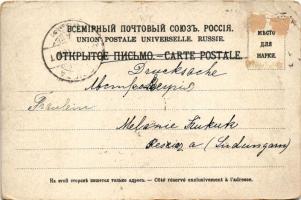 ВСЕМІРНЫЙ ПОЧТОВЫЙ СОЮЗЪ. РОССІЯ.
UNION POSTALE UNIVERSELLE. RUSSIE.
ОТКРЫТОЕ ПИСЬМО.—CARTE POSTALE.
МѢСТО
ДЛЯ
МАРКИ.
Drucksache
Fräulein
Melanie Kukuk
(Südungarn)
На этой сторонѣ пишется только адресъ. — Côté réservé exclusivement à l'adresse.